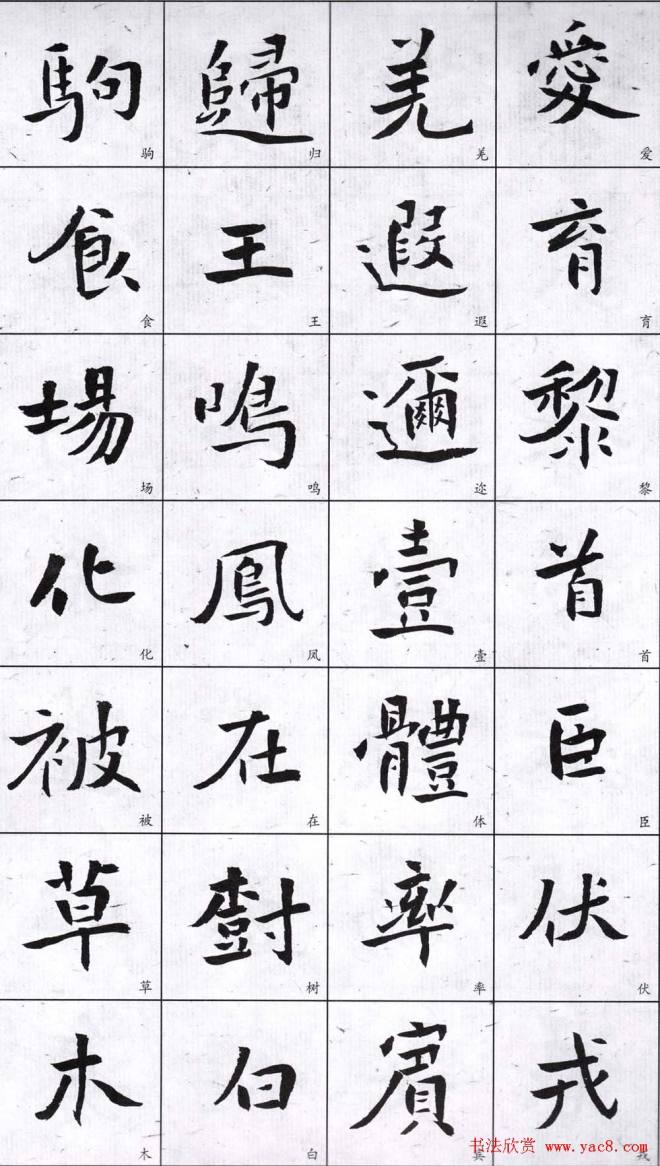 愛育黎首臣伏戎
爱育黎首臣伏
羌遐邇壹體率賓
羌遐迩壹体率
歸王鳴鳳在樹白
归王鸣凤在树白
駒食場化被草木
驹食场化被草木
书法欣赏 www.yac8.com